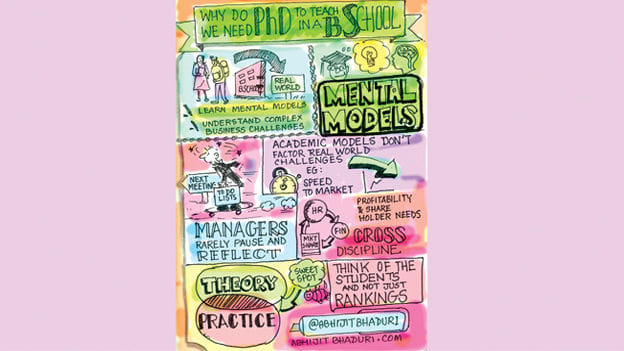 WHY DO
WE NEED PhD TO TEACH
IN A B SCHOOL
B.SCHOOL
REAL
WORLD
LEARN MENTAL MODELS
UNDERSTAND COMPLEX
BUSINESS CHALLENGES
MENTAL
MODELS
ACADEMIC MODELS DON'T
FACTOR REAL WORLD
CHALLENGES
EG:
SPEED
TO MARKET
NEXT
MEETING
TO DO
LISTS
PROFITABILITY
& SHARE
HOLDER NEEDS
MANAGERS
RARELY PAUSE AND
REFLECT
HR
FIN
MKT
SHARE
CROSS
DISCIPLINE
THEORY
PRACTICE
SWEET
SPOT
THINK OF THE
STUDENTS
AND NOT JUST
RANKINGS
@ABHIJITBHADURI
ABHIJITBHADURI.COM